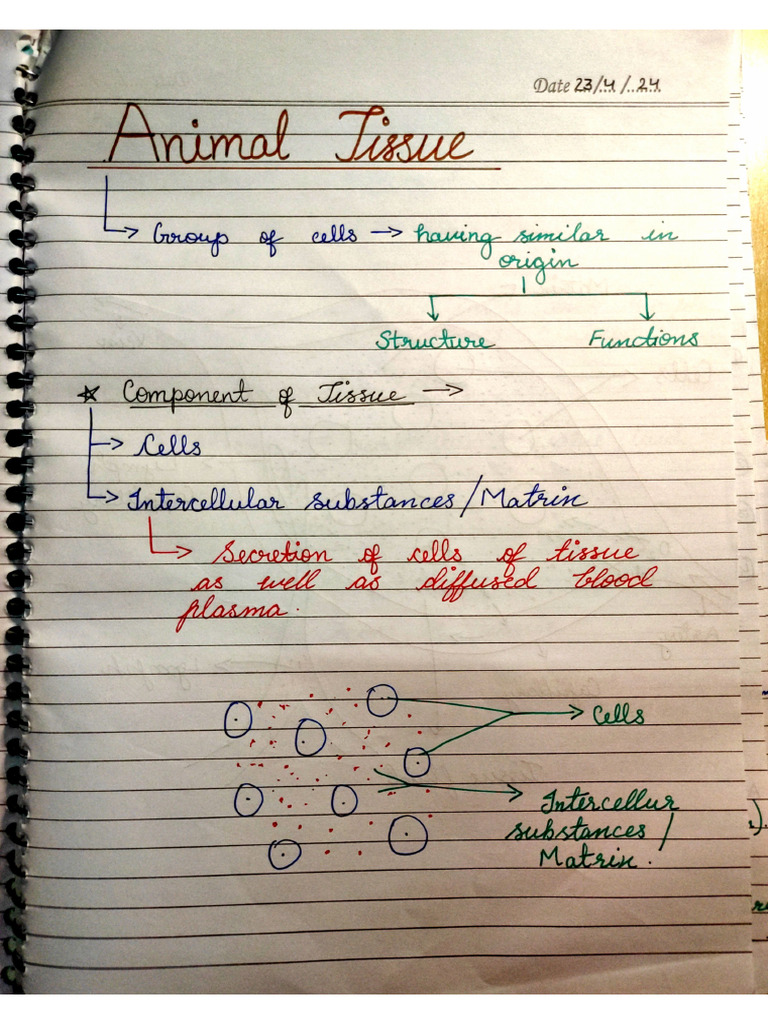 Date 23/4/.24
Animal Tissue
Group of cells → having similar in
origin
Structure Functions
☆ Component of Tissue →
Cells
Intercellular substances/Matrin
Secretion of cells of tissue
as well as diffused blood
plasma.
Cells
Intercellur
substances/
Matrin.